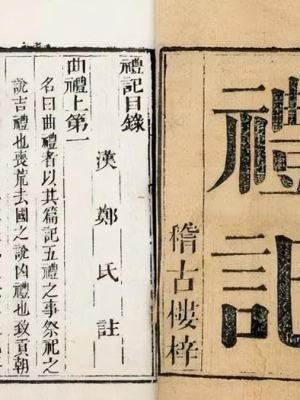 禮記
稽古樓梓
禮記目錄
漢鄭氏註
曲禮上第一
名曰曲禮者以其篇記五禮之事祭祀之
說吉禮也喪荒去國之說凶禮也致貢朝